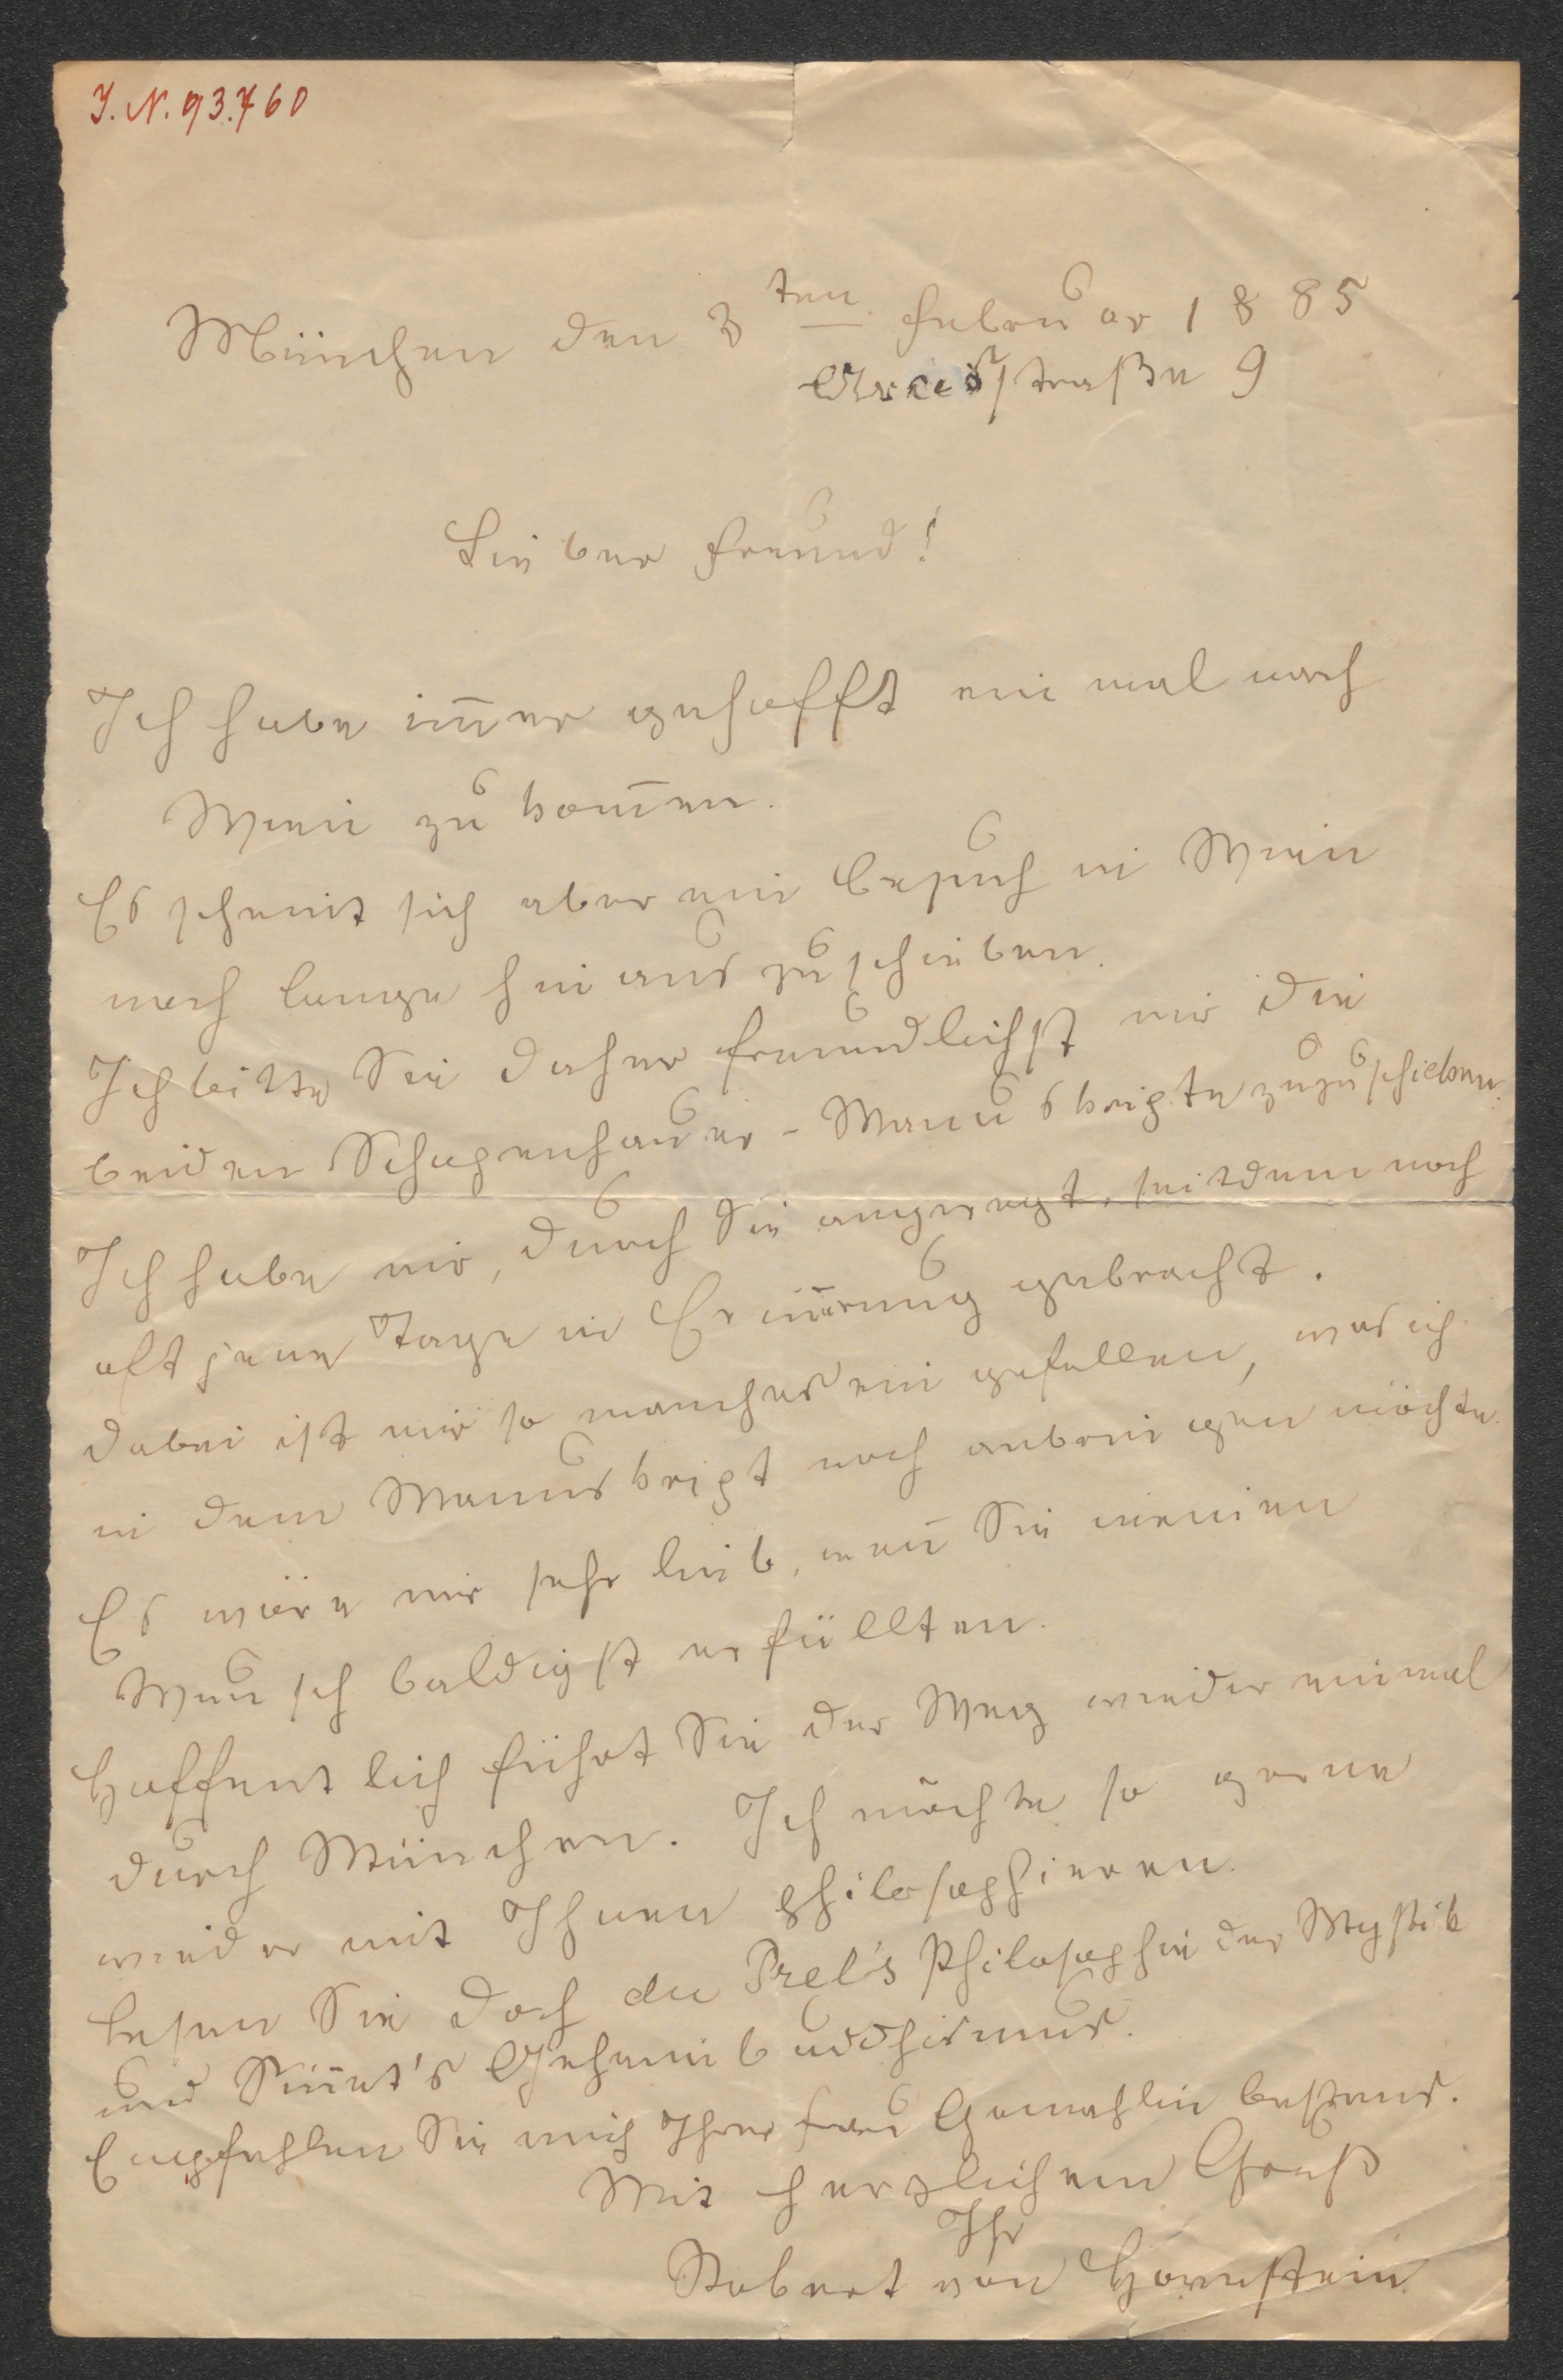 I. N. 93.760
München den 3ten Februar 1885
Arcisstraße 9
Lieber Freund!
Ich habe im̅er gehofft ein mal nach
Wien zu kom̅en.
Es scheint sich aber ein Besuch in Wien
noch lange hinaus zu schieben.
Ich bitte Sie daher freundlichst mir die
beiden Schopenhauer-Manuskripte zuzuschicken.
Ich habe mir, durch Sie angeregt, seitdem noch
oft jene Tage in Erin̅erung gebracht.
Dabei ist mir so manches ein gefallen, was ich
in dem Manuskript noch anbringen möchte.
Es wäre mir sehr lieb, wen̅ Sie meinen
Wunsch baldigst erfüllten.
Hoffentlich führt Sie der Weg wieder einmal
durch München. Ich möchte so gerne
wieder mit Ihnen philosophieren.
Lesen Sie doch du Prel's Philosophie der Mystik
und Sin̅et's Geheimbuddhismus.
Empfehlen Sie mich Ihrer Frau Gemahlin bestens.
Mit herzlichem Gruß
Ihr
Robert von Hornstein